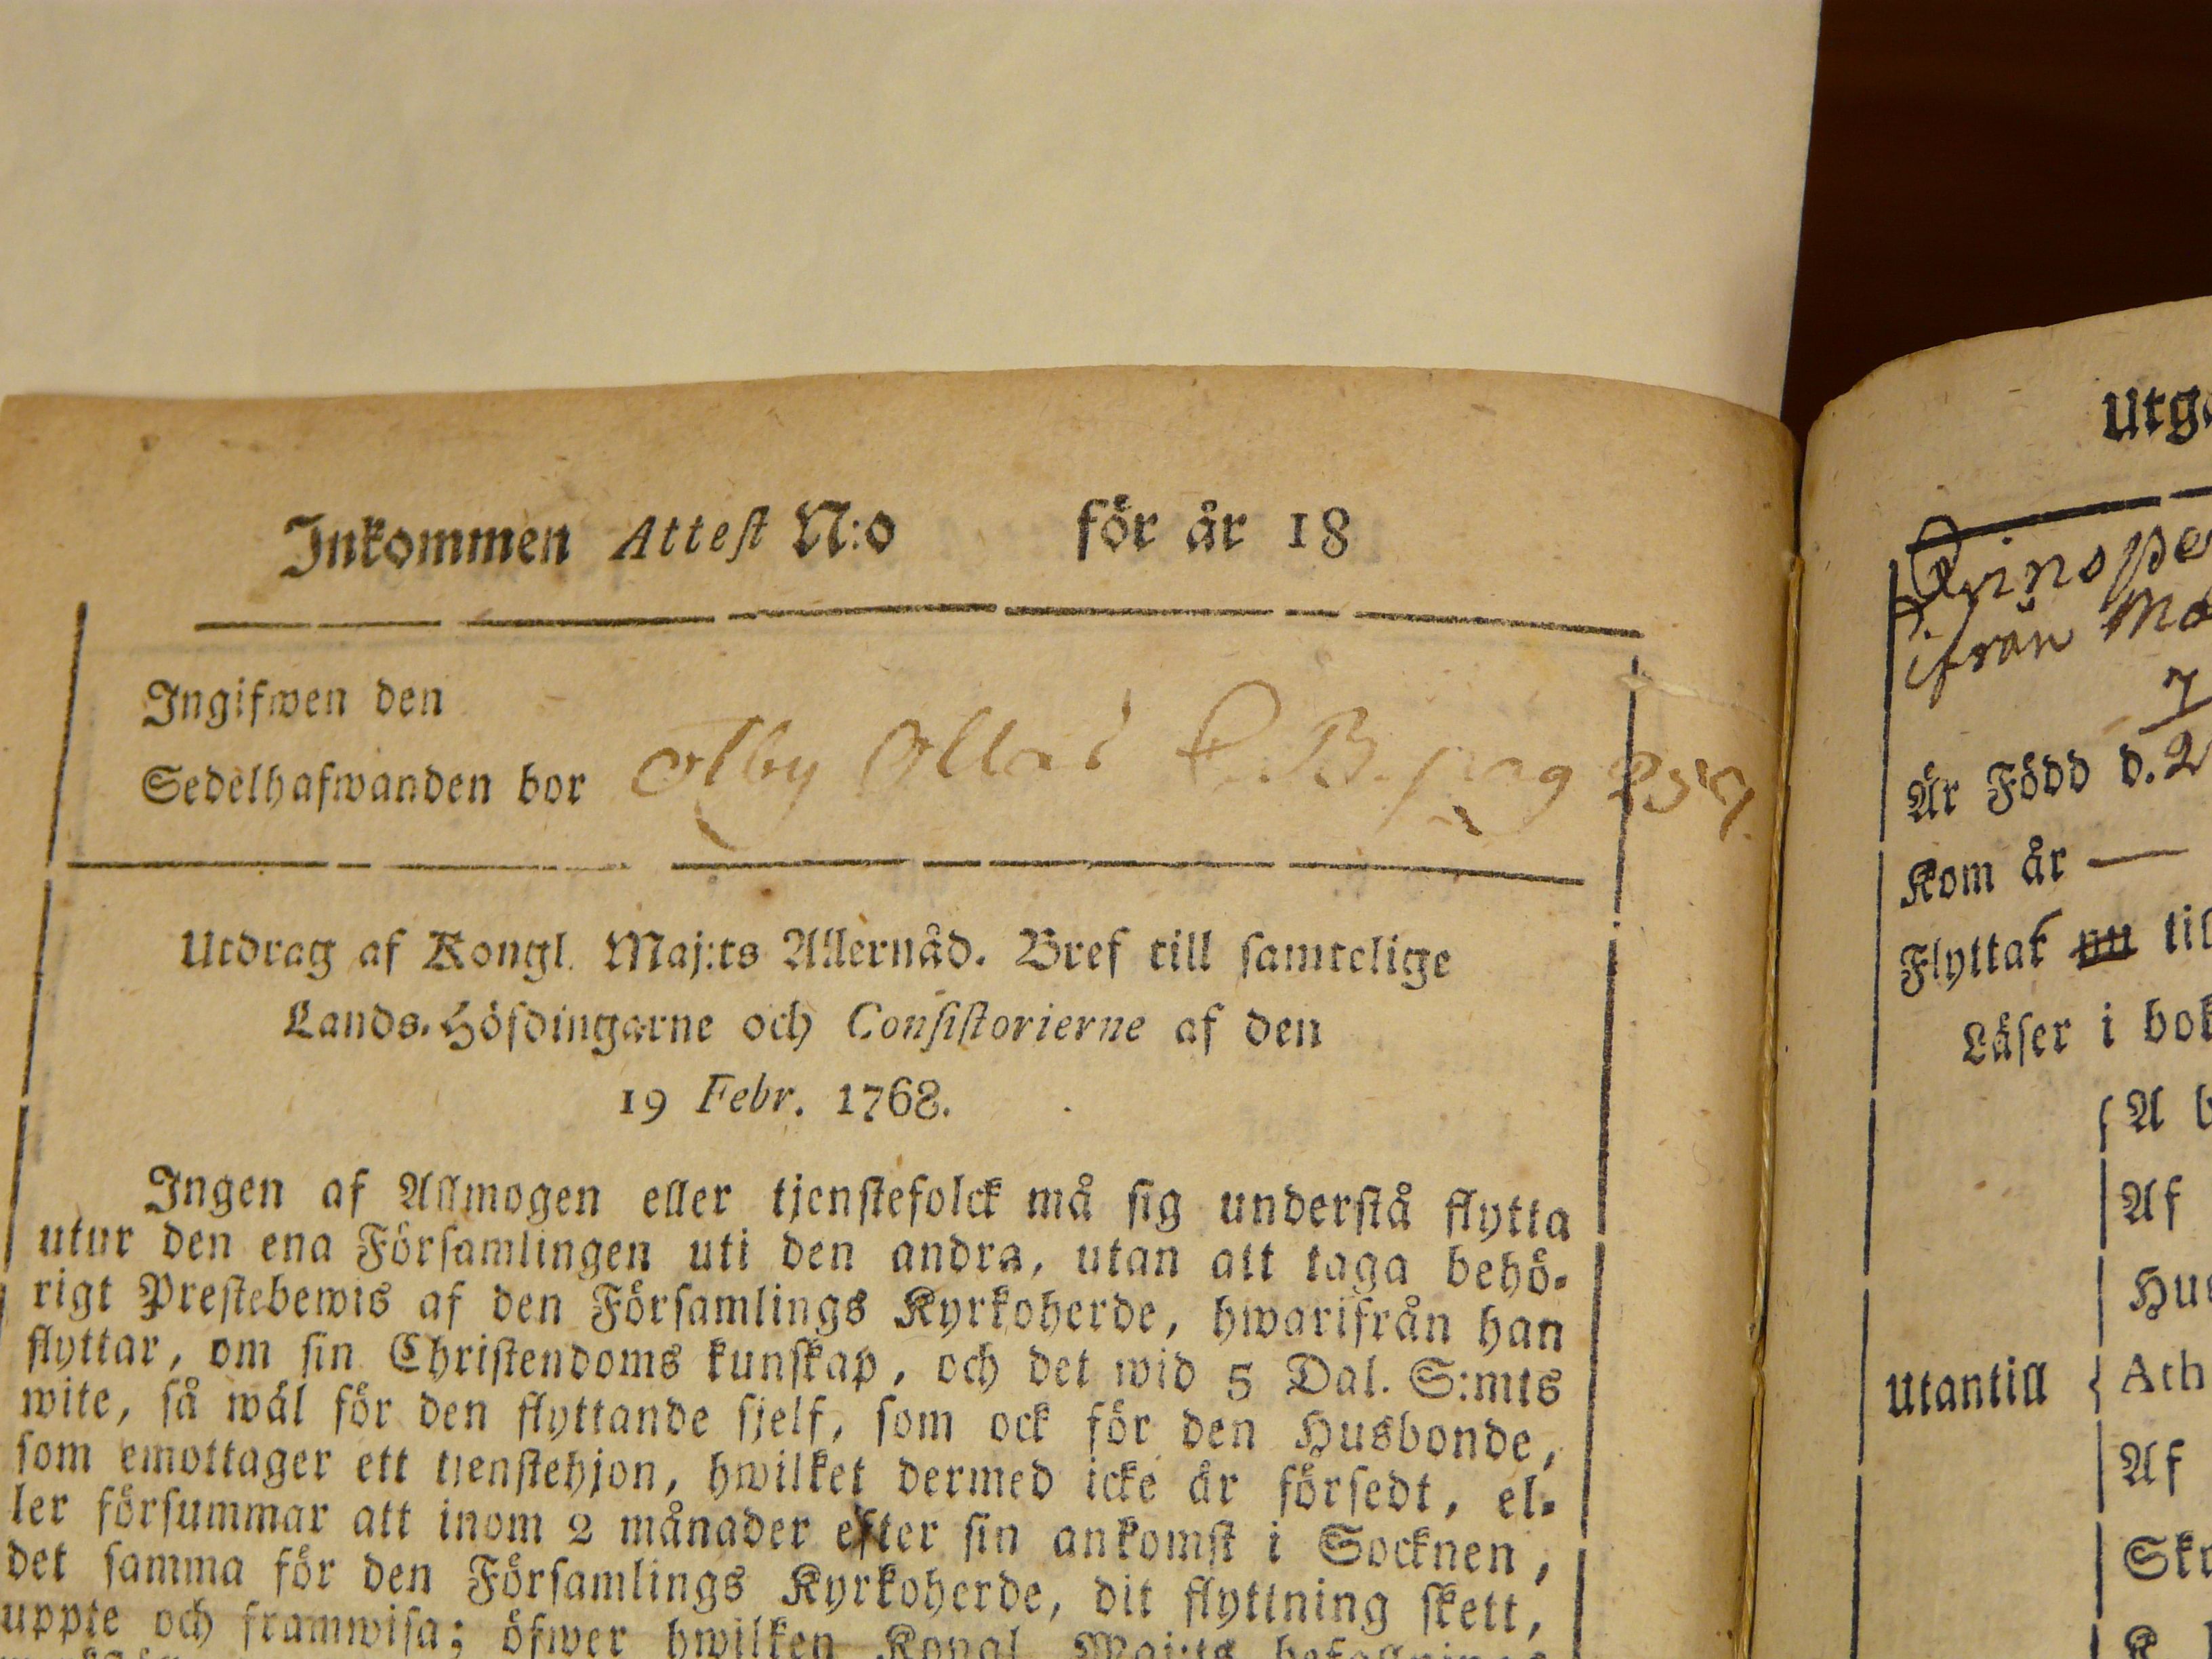 Inkommen Attest N:o för år 18
Ingifwen den
Sedelhafwanden bor Olby C. B. pag 259.
Utdrag af Kongl. Maj:ts Allernåd. Bref till samtelige
Lands-Höfdingarne och Consistorierne af den
19 Febr. 1768.
Ingen af Allmogen eller tjenstefolck må sig understå flytta
utur den ena Församlingen uti den andra, utan att taga behö-
rigt Prestebewis af den Församlings Kyrkoherde, hwarifrån han
flyttar, om sin Christendoms kunskap, och det wid 5 Dal. S:mts
wite, så wäl för den flyttande sjelf, som ock för den Husbonde,
som emottager ett tjenstehjon, hwilket dermed icke är försedt, el-
ler försummar att inom 2 månader efter sin ankomst i Socknen,
det samma för den Församlings Kyrkoherde, dit flyttning skett,
uppte och framwisa; öfwer hwilken Kongl. Maj:ts
Utg
ifrån
Är Född d. 2
Kom år —
Flyttar nu til
Läser i bok
A b
Af
Hu
Utantill { Ath
Af
Sk